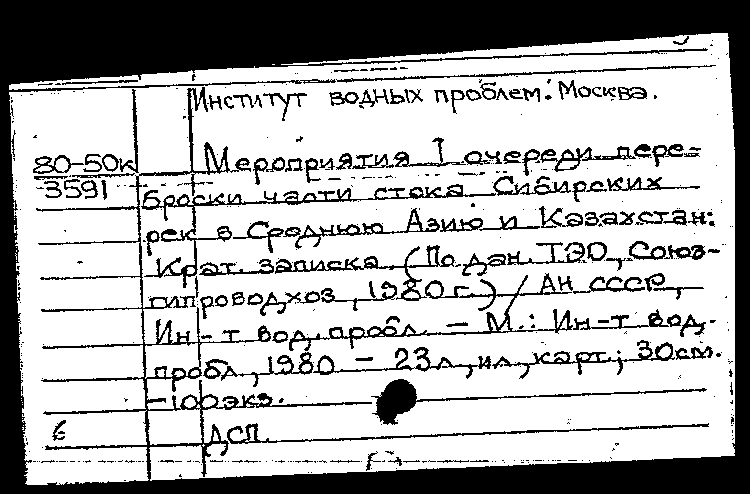 Институт водных проблем. Москва.
80-50к Мероприятия I очереди пере-
3591 броски части стока Сибирских
рек в Среднюю Азию и Казахстан:
Крат. записка. (По дан. ТЭО, Союз-
гипроводхоз, 1980 г.) / АН СССР,
Ин-т вод. пробл. — М.: Ин-т вод.
пробл., 1980 — 23л., ил., карт.; 30см.
— 100экз.
6 ДСП.